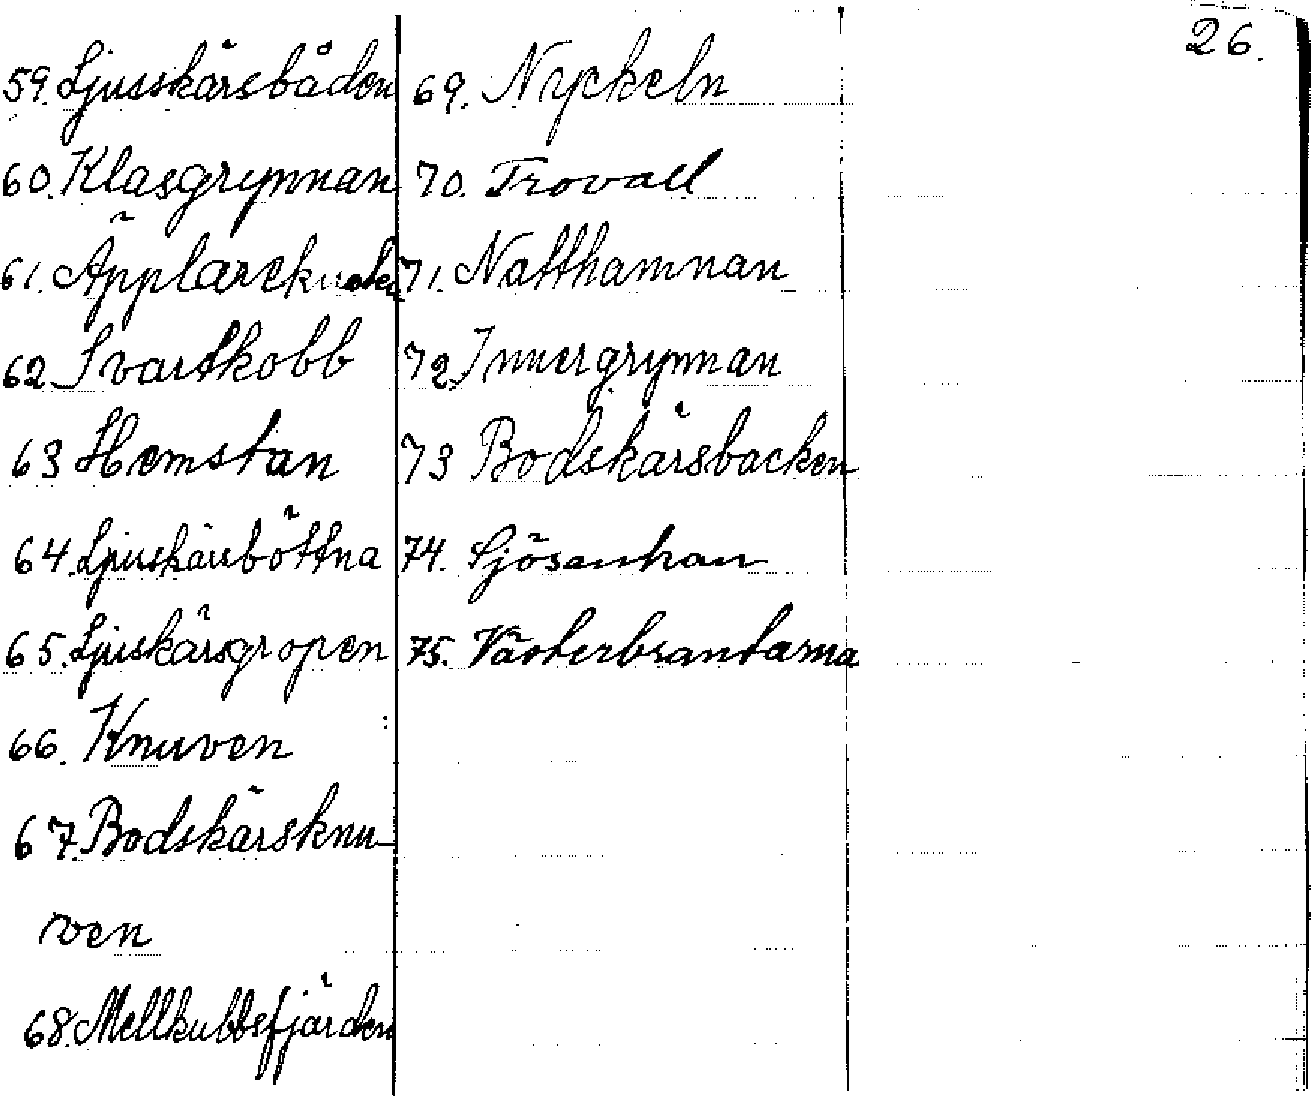 26.
59. Ljusskärsbåden
60. Klasgrynnan
61.
62. Svartkobb
63 Hemstan
64. Ljuskärsböttna
65. Ljuskärsgropen
66. Knuven
67. Bodskärsknu-
ven
68. Mellkubbsfjärden
69. Nyckeln
70. Trovall
71. Natthamnan
72. Innergrynnan
73 Bodskärsbacken
74. Sjösanhan
75. Västerbrantarna